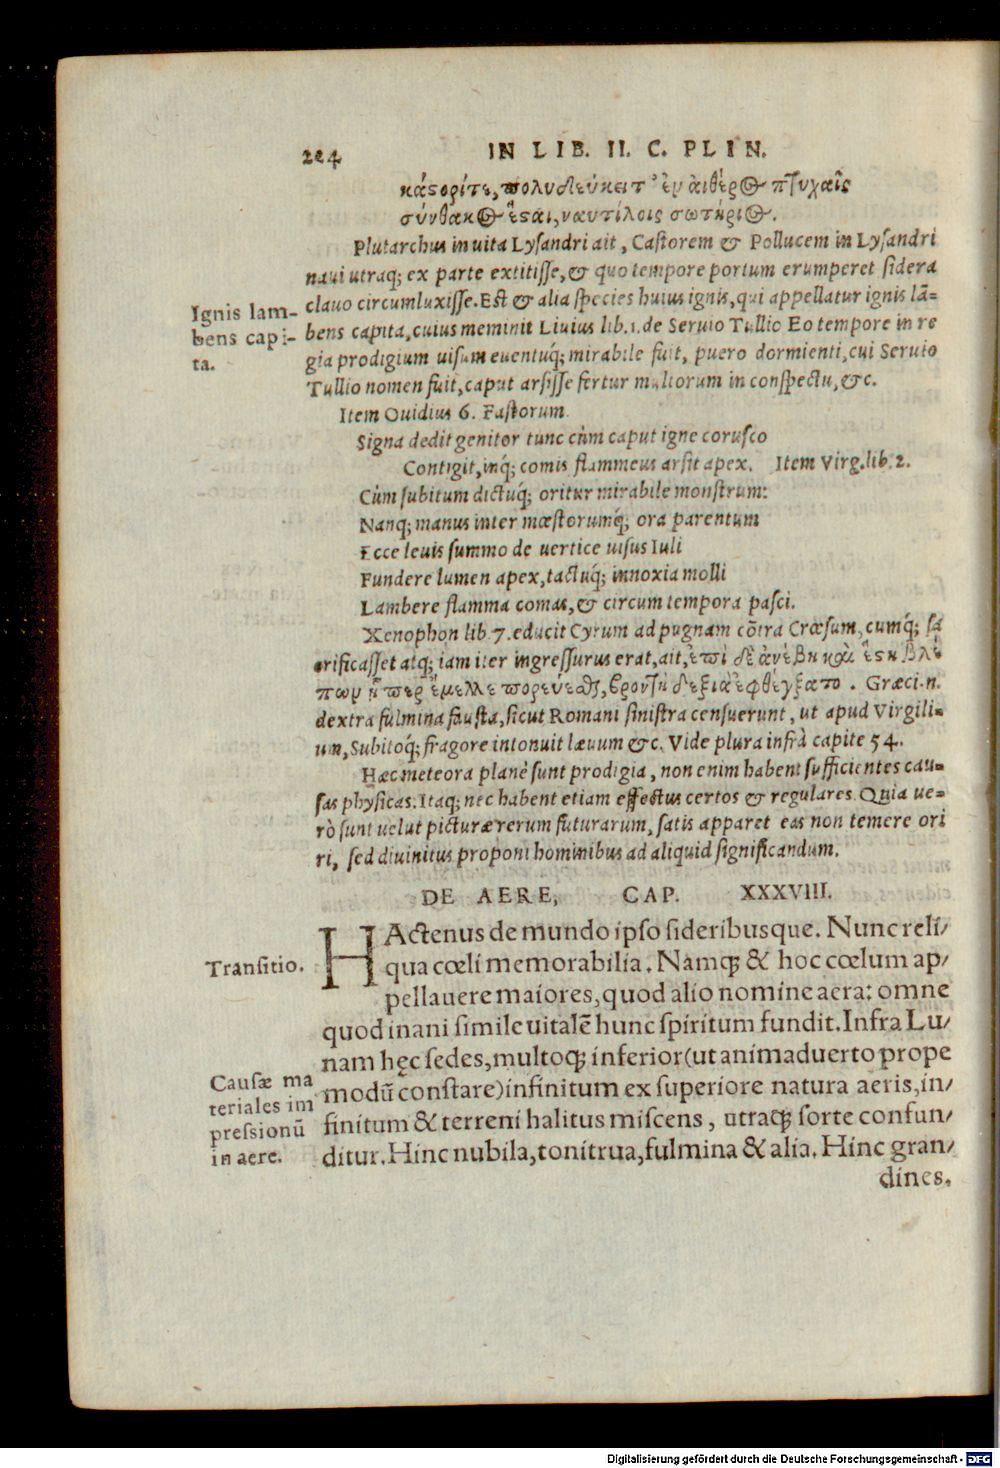 224 IN LIB. II. C. PLIN.
κάςορίτε, πολυδεύκει τ' ἐν αἰθέρος πτυχαῖς
σύνθακος ἔςαι, ναυτίλοις σωτήριος.
Plutarchus in uita Lysandri ait, Castorem & Pollucem in Lysandri
naui utraq; ex parte extitisse, & quo tempore portum erumperet sidera
clauo circumluxisse. Est & alia species huius ignis, qui appellatur ignis lã=
Ignis lam-
bens capi-
ta.
bens capita, cuius meminit Liuius lib. 1. de Seruio Tullio Eo tempore in re
gia prodigium uisum euentuq́; mirabile fuit, puero dormienti, cui Seruio
Tullio nomen fuit, caput arsisse fertur multorum in conspectu, &c.
Item Ouidius 6. Fastorum.
Signa dedit genitor tunc cùm caput igne corusco
Contigit, inq́; comis flammeus arsit apex. Item Virg. lib. 2.
Cùm subitum dictuq́; oritur mirabile monstrum:
Nanq; manus inter mœstorumq́; ora parentum
Ecce leuis summo de uertice uisus Iuli
Fundere lumen apex, tactuq́; innoxia molli
Lambere flamma comas, & circum tempora pasci.
Xenophon lib. 7. educit Cyrum ad pugnam cõtra Crœsum, cumq́; sa
crificasset atq; iam iter ingressurus erat, ait, ἐπὶ δὲ ἀνέβη καὶ
πων ᾗπερ ἔμελλε πορεύεσθαι, βροντὴ δεξιὰ ἐφθέγξατο. Græci.n.
dextra fulmina fausta, sicut Romani sinistra censuerunt, ut apud Virgili=
um, Subitoq́; fragore intonuit læuum &c. Vide plura infrà capite 54.
Hæc meteora planè sunt prodigia, non enim habent sufficientes cau=
sas physicas. Itaq; nec habent etiam effectus certos & regulares. Quia ue=
rò sunt uelut picturæ rerum futurarum, satis apparet eas non temere ori
ri, sed diuinitus proponi hominibus ad aliquid significandum.
DE AERE, CAP. XXXVIII.
HActenus de mundo ipso sideribusque. Nunc reli/
Transitio.
qua cœli memorabilia. Namq; & hoc cœlum ap/
pellauere maiores, quod alio nomine aera: omne
quod inani simile uitalẽ hunc spiritum fundit. Infra Lu/
nam hęc sedes, multoq; inferior (ut animaduerto prope
Causæ ma
teriales im
pressionũ
in aere.
modũ constare) infinitum ex superiore natura aeris, in/
finitum & terreni halitus miscens, utraq; sorte confun/
ditur. Hinc nubila, tonitrua, fulmina & alia. Hinc gran/
dines.
Digitalisierung gefördert durch die Deutsche Forschungsgemeinschaft - DFG